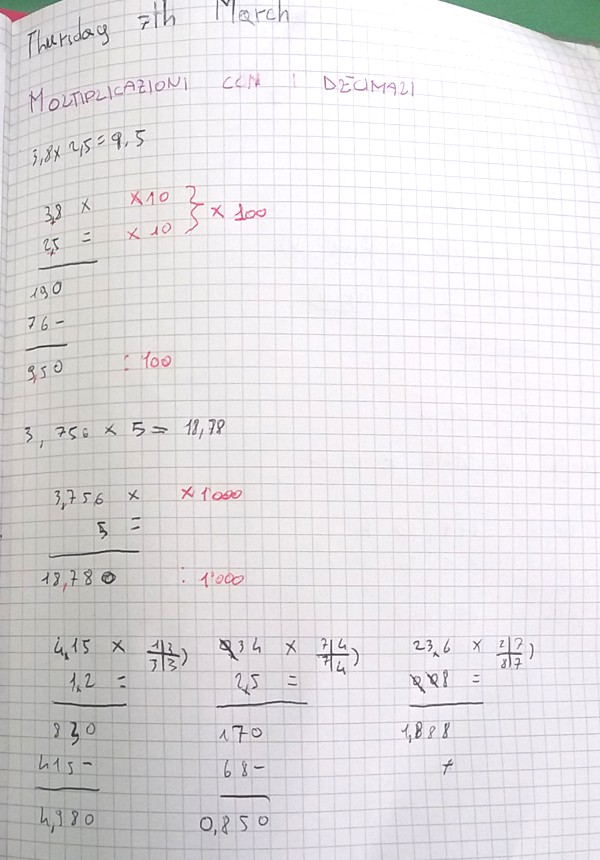 Thursday 7th March
MOLTIPLICAZIONI CON I DECIMALI
3,8 x 2,5 = 9,5
3,8 x x10
2,5 = x10 } x 100
190
76-
9,50 : 100
3,756 x 5 = 18,78
3,756 x x1'000
5 =
18,780 : 1'000
4,15 x 1|3 034 x 7|4 23,6 x 2|7
1,2 = 3|3) 2,5 = 7|4) 008 = 8|7)
830 170 1,888
415- 68-
4,980 0,850